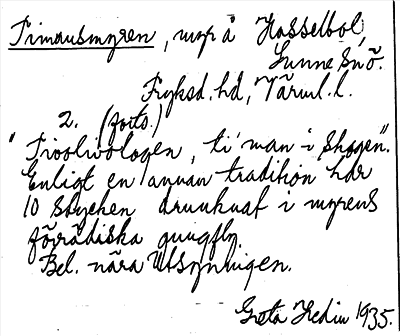 Timansmyren, myr å Hasselbol,
Sunne Snö.
Fryksd. hd, Värml. l.
2. (forts.)
"Troolivologen, ti man i Skogen".
Enligt en annan tradition har
10 stycken drunknat i myrens
förrädiska gungfly.
Bel. nära Utsyningen.
Greta Hedin 1935.